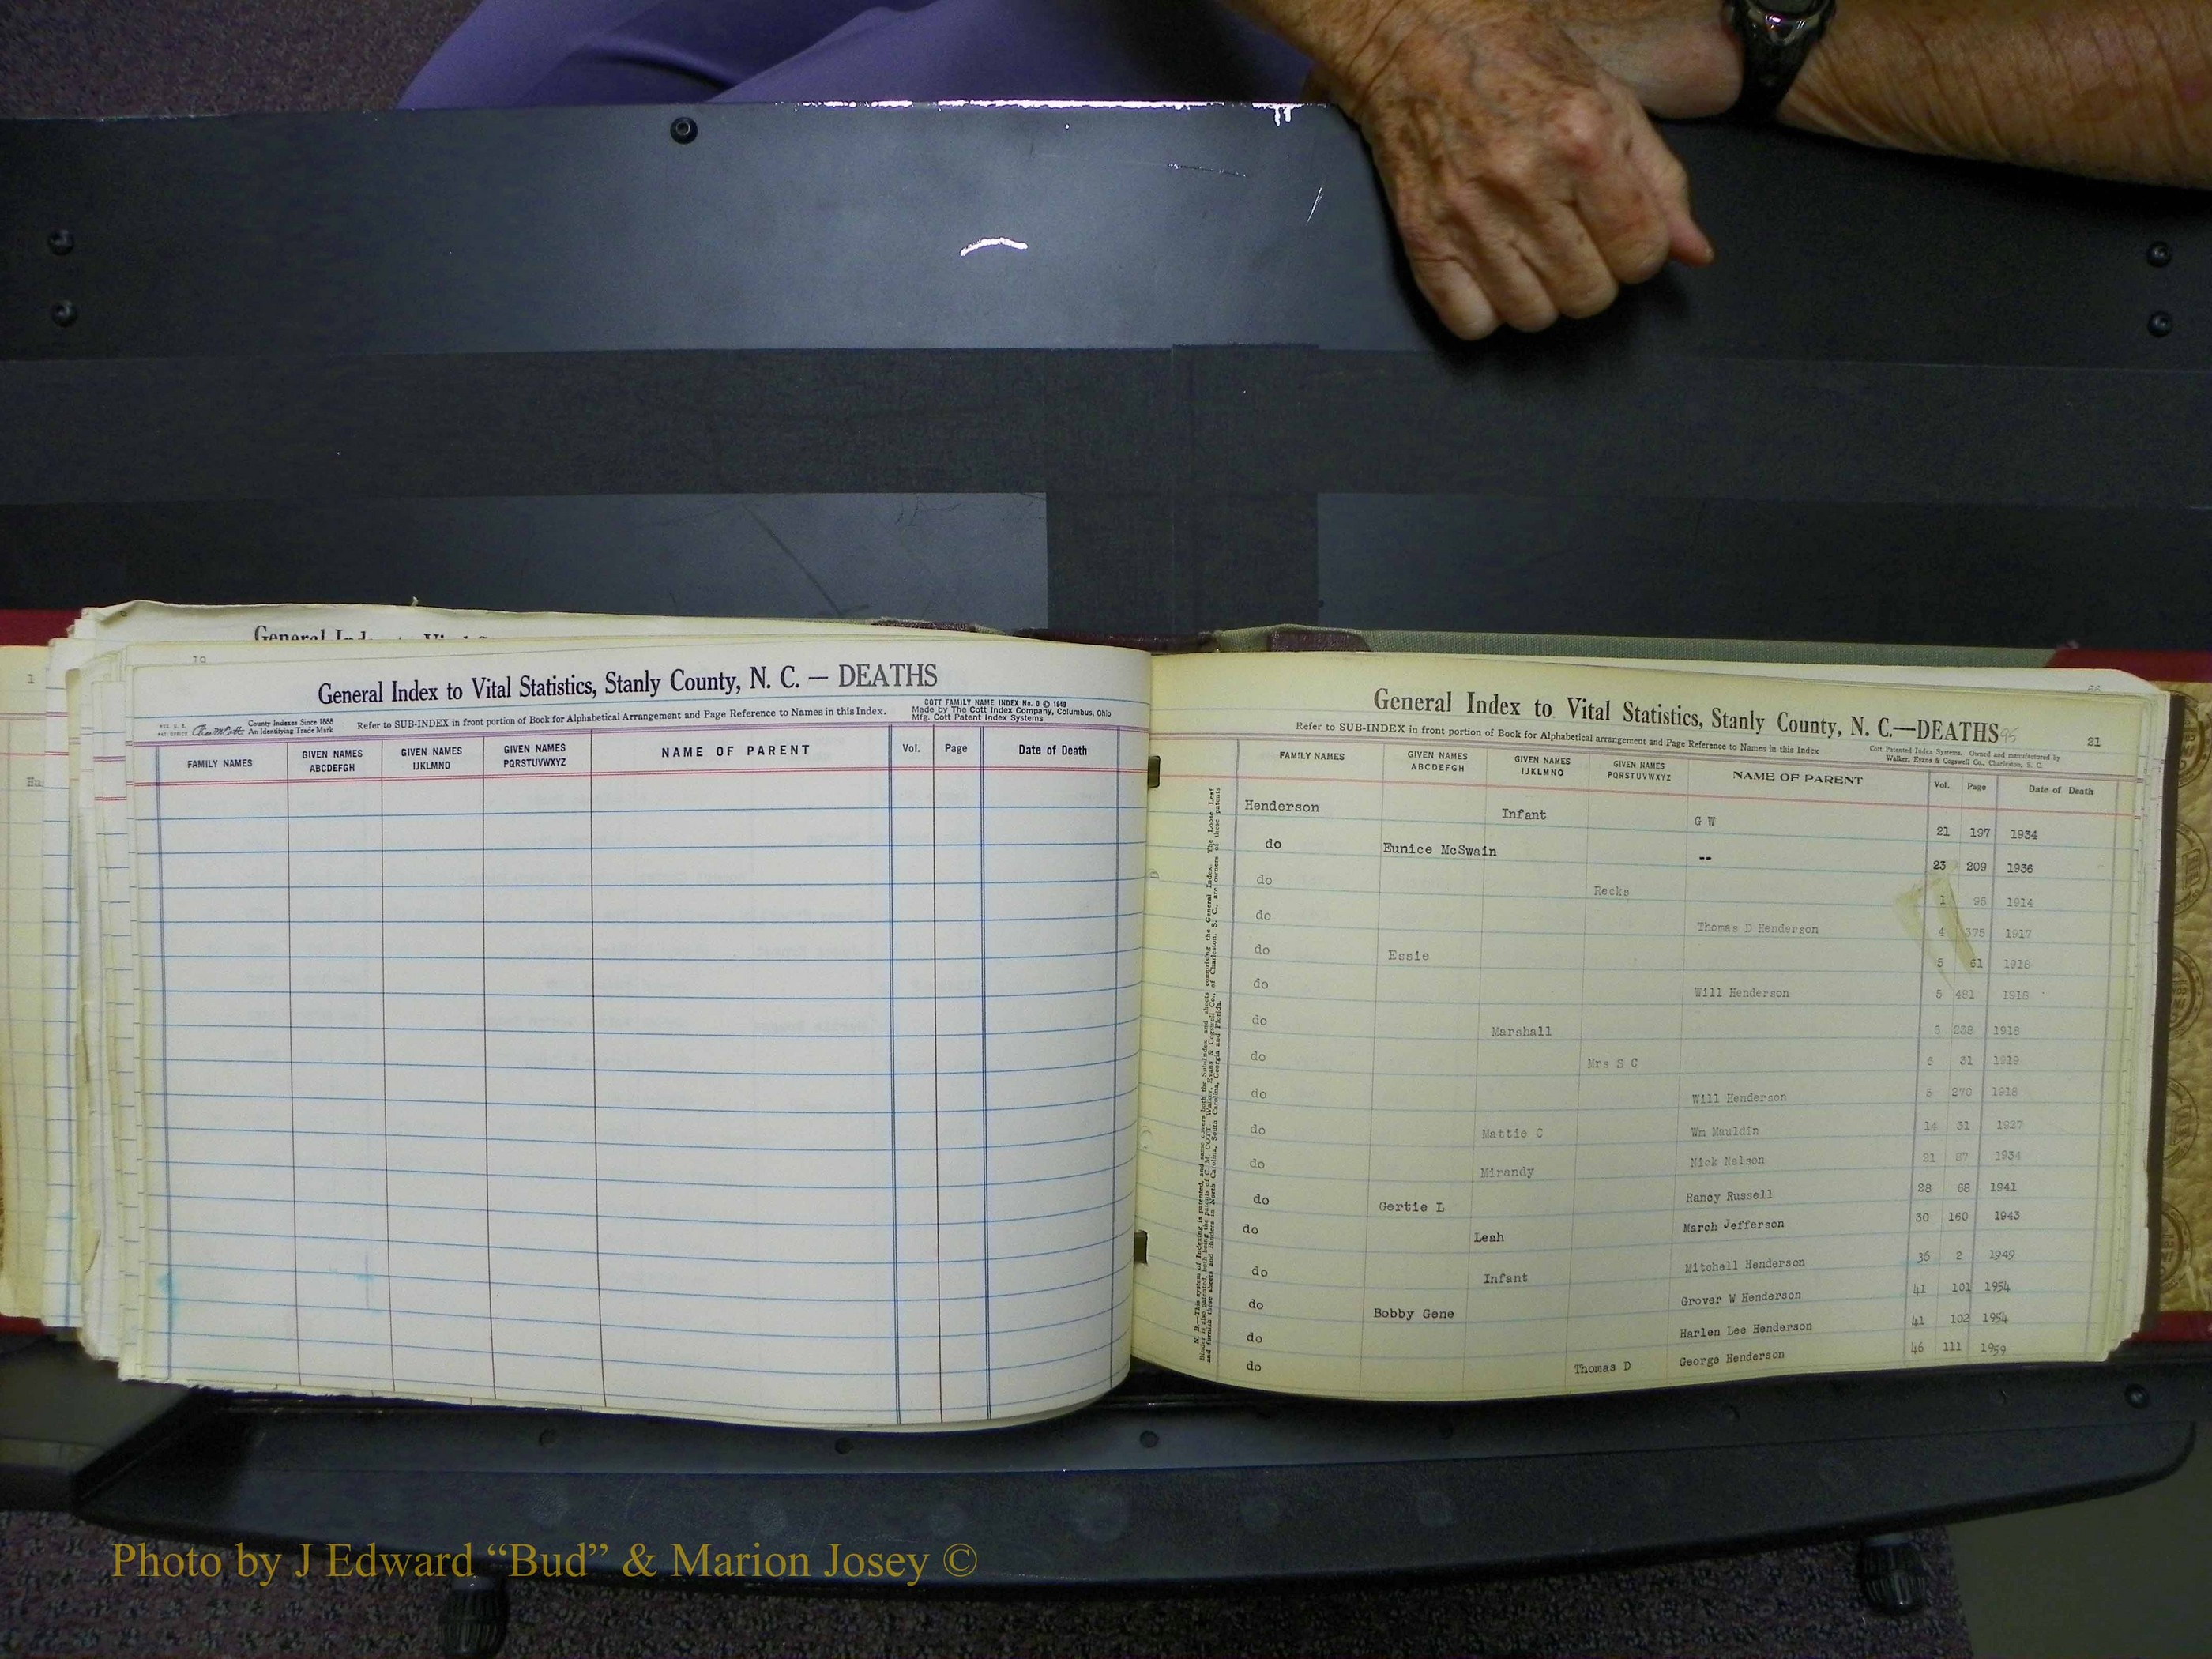 General Index to Vital Statistics, Stanly County, N. C. — DEATHS
County Indexes Since 1888
An Identifying Trade Mark
Refer to SUB-INDEX in front portion of Book for Alphabetical Arrangement and Page Reference to Names in this Index.
COTT FAMILY NAME INDEX No. 0 © 1949
Made by The Cott Index Company, Columbus, Ohio
Mfg. Cott Patent Index Systems
FAMILY NAMES GIVEN NAMES ABCDEFGH GIVEN NAMES IJKLMNO GIVEN NAMES PQRSTUVWXYZ NAME OF PARENT Vol. Page Date of Death
General Index to Vital Statistics, Stanly County, N. C.—DEATHS 95
21
Refer to SUB-INDEX in front portion of Book for Alphabetical arrangement and Page Reference to Names in this Index
Cott Patented Index Systems. Owned and manufactured by
Walker, Evans & Cogswell Co., Charleston, S. C.
FAMILY NAMES GIVEN NAMES ABCDEFGH GIVEN NAMES IJKLMNO GIVEN NAMES PQRSTUVWXYZ NAME OF PARENT Vol. Page Date of Death
Henderson Infant G W 21 197 1934
do Eunice McSwain -- 23 209 1936
do Recks 1 95 1914
do Thomas D Henderson 4 375 1917
do Essie 5 61 1918
do Will Henderson 5 481 1918
do Marshall 5 238 1918
do Mrs S C 6 31 1919
do Will Henderson 5 270 1918
do Mattie C Wm Mauldin 14 31 1927
do Mirandy Nick Nelson 21 87 1934
do Gertie L Rancy Russell 28 68 1941
do Leah March Jefferson 30 160 1943
do Infant Mitchell Henderson 36 2 1949
do Bobby Gene Grover W Henderson 41 101 1954
do Harlen Lee Henderson 41 102 1954
do Thomas D George Henderson 46 111 1959
Photo by J Edward “Bud” & Marion Josey ©